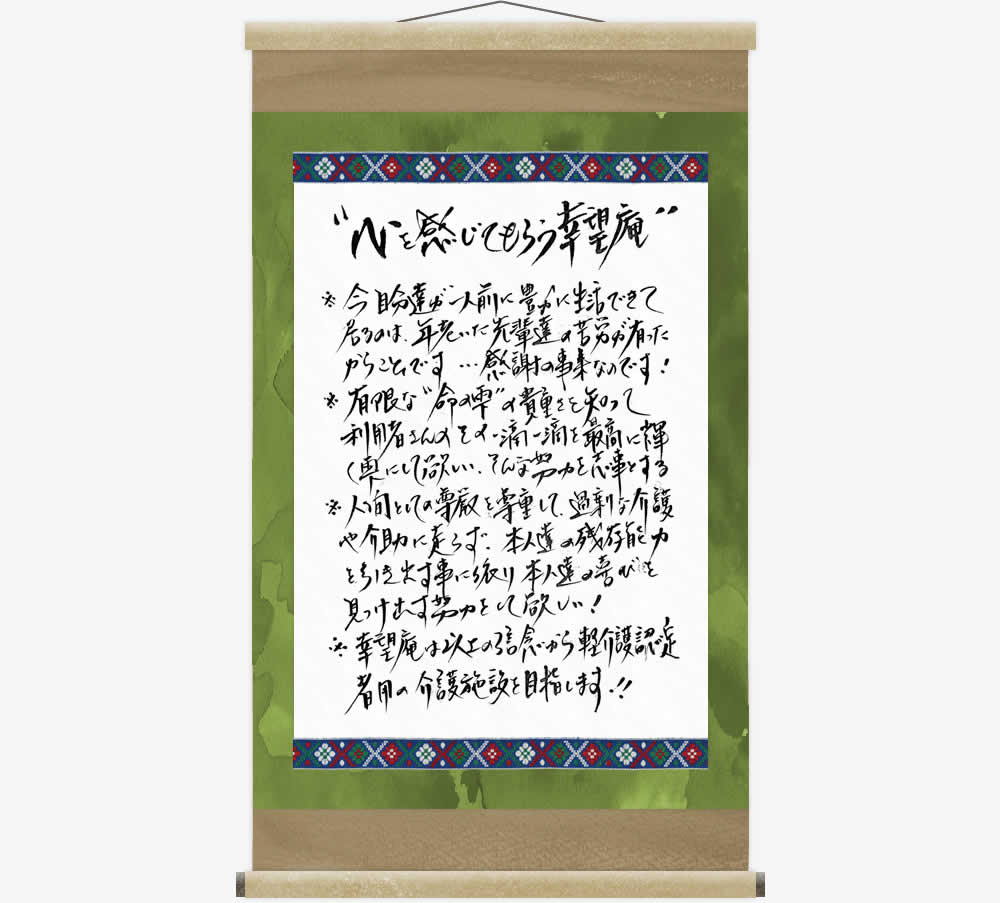 "心を感じてもらう幸望庵"
※今自分達が一人前に豊かに生活できて
居るのは、年老いた先輩達の苦労が有った
からことです…感謝の事集なのです!
※有限な"命の雫"の貴重さを知って
利用者さんのその一滴一滴を最高に輝
く輿にして欲しい、そんな努力を志事とする
※人間としての尊厳を尊重して、過剰な介護
や介助に走らず、本人達の残存能力
を引き出す事に依り本人達の喜びを
見つけ出す努力をして欲しい!
※幸望庵は以上の信念から軽介護認定
者用の介護施設を目指します.!!